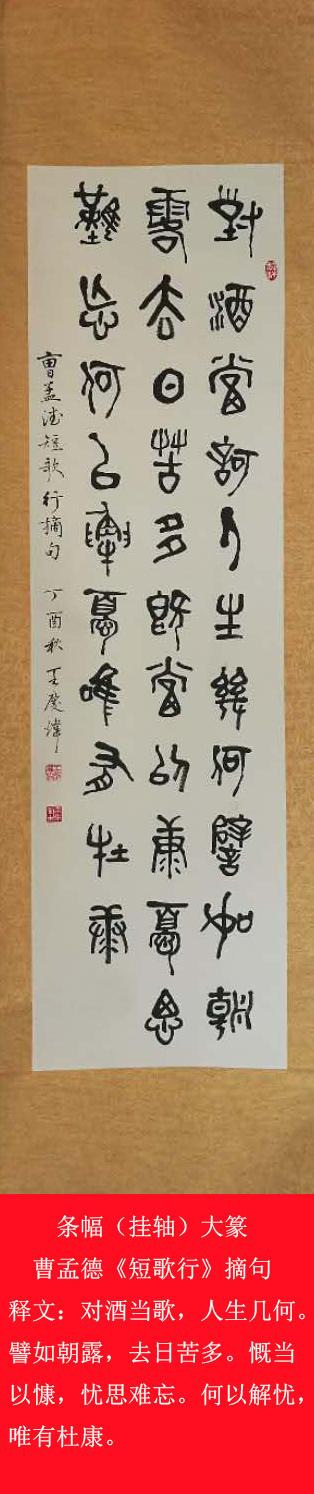 對酒當訶人生幾何譬如朝
露去日苦多既當以康憂思
難忘何以解憂唯有杜康
曹孟德短歌行摘句 丁酉秋 王慶煒
条幅（挂轴）大篆
曹孟德《短歌行》摘句
释文：对酒当歌，人生几何。
譬如朝露，去日苦多。慨当
以慷，忧思难忘。何以解忧，
唯有杜康。